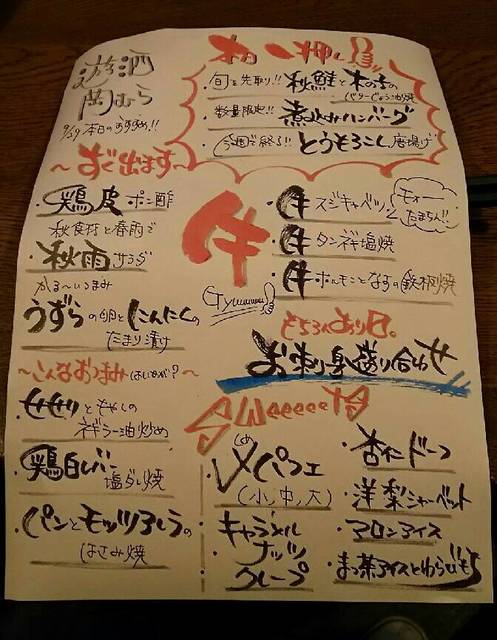 游酒
岡むら
9/29 本日のおすすめ!!
本日一押し!!
旬を先取り!! 秋鮭と木の子の
バターじょうゆ焼
数量限定!! 煮込みハンバーグ
今週で終了!! とうもろこし唐揚げ
〜すぐ出ます〜
・鶏皮ポン酢
秋食材と春雨で
・秋雨サラダ
かる〜いつまみ
・うずらの卵とにんにくの
たまり漬け
牛
Gyuuuuu
・牛スジキャベツ
モォー
たまらん!!
・牛タンネギ塩焼
・牛ホルモンとなすの鉄板焼
もちろんあり〼。
お刺身盛り合わせ
〜こんなおつまみはいかが?〜
・せせりともやしの
ネギラー油炒め
・鶏白レバー
塩ダレ焼
・パンとモッツァレラの
はさみ焼
Sweeeeets
・〆パフェ
しめ
(小、中、大)
・キャラメル
ナッツ
クレープ
・杏仁ドーフ
・洋梨シャーベット
・マロンアイス
・まっ茶アイスとわらびもち